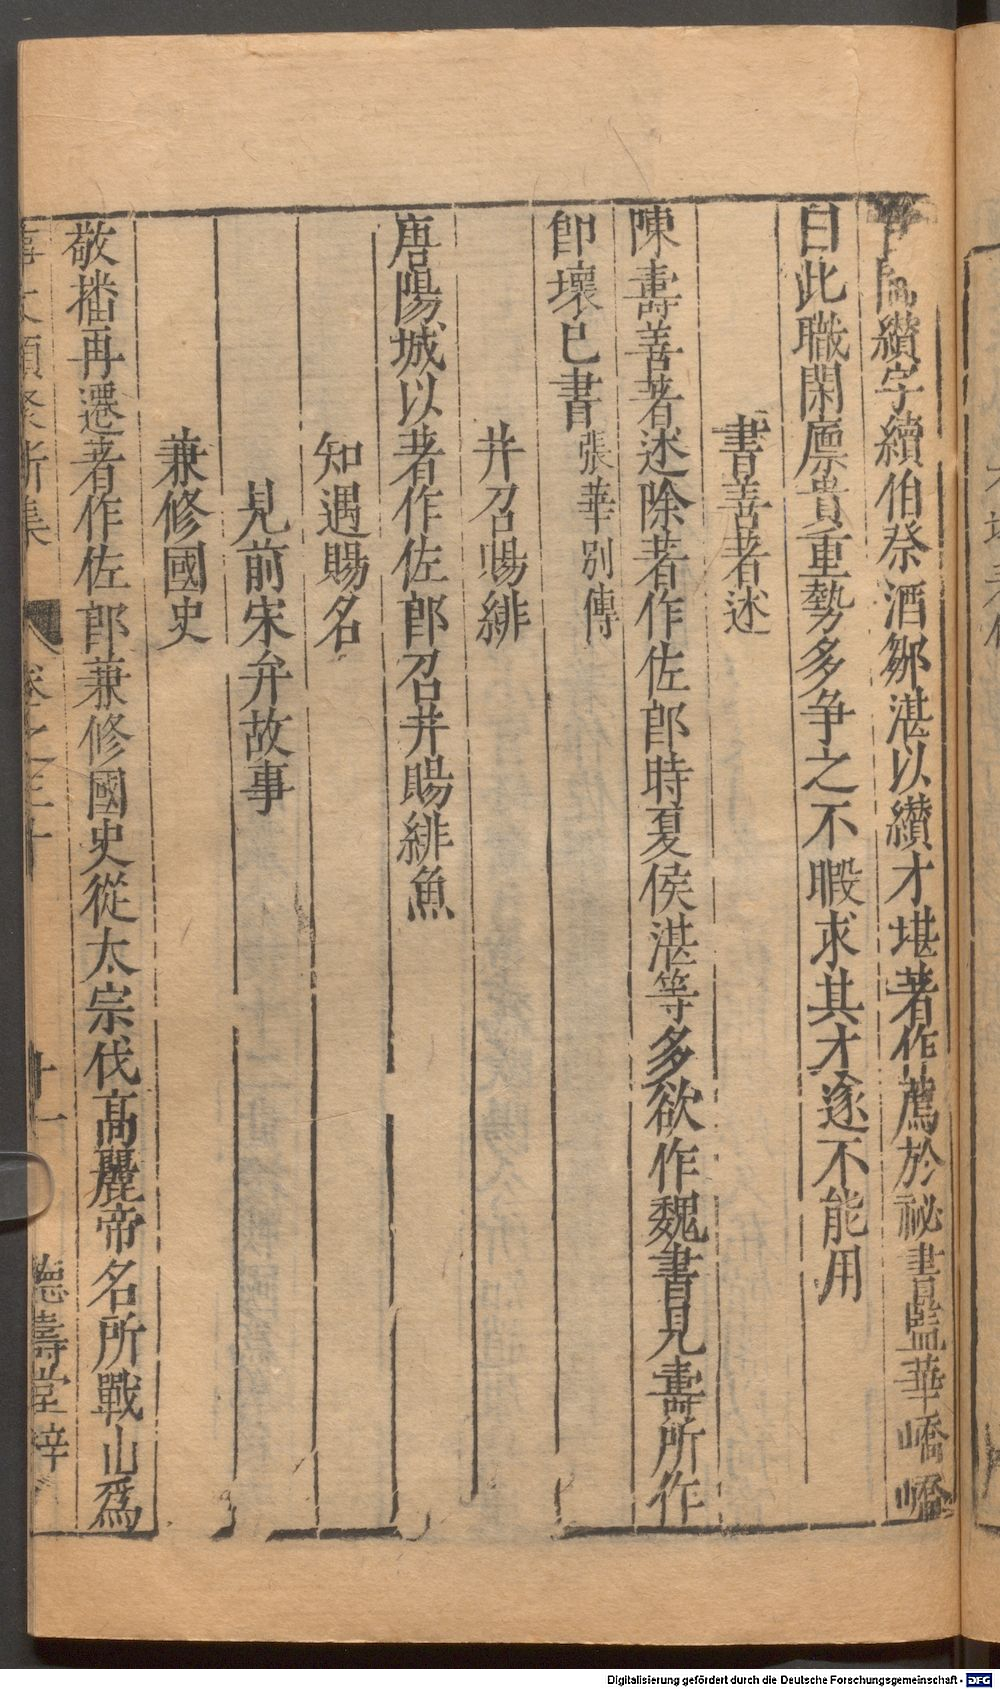 纉字續伯祭酒鄒湛以纉才堪著作薦於祕書監華嶠嶠
曰此職閑廪貴重勢多争之不暇求其才遂不能用
書善著述
陳壽善著述除著作佐郎時夏侯湛等多欲作魏書見壽所作
卽壞已書 張華别傳
井召賜緋
唐陽城以著作佐郎召井賜緋魚
知遇賜名
見前宋弁故事
兼修國史
敬播再遷著作佐郎兼修國史從太宗伐高麗帝名所戰山爲
事文類聚新集 卷之三十 廿一 德壽堂梓
Digitalisierung gefördert durch die Deutsche Forschungsgemeinschaft - DFG